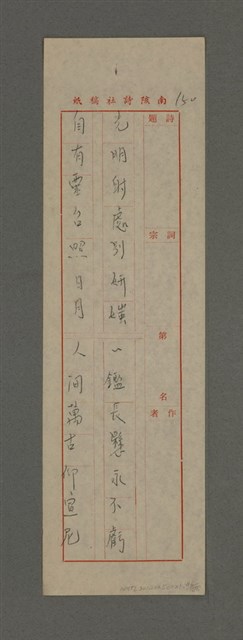 南陔詩社稿紙
150
詩題
詞宗
第 名
作者
光明射處別妍媸 一鑑長懸永不虧
自有靈台照日月 人間萬古仰宣尼